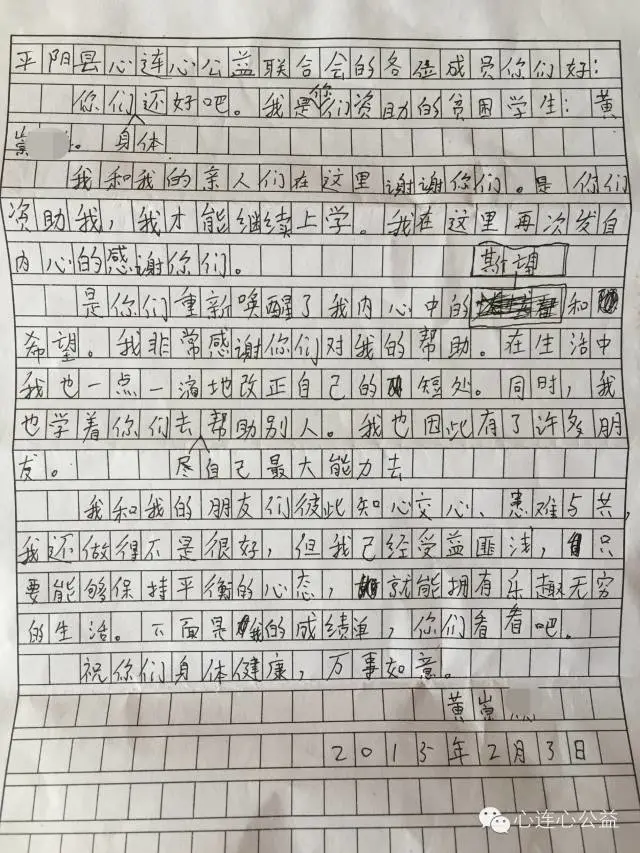 平阳县心连心公益联合会的各位成员你们好：
你们身体还好吧。我是您们资助的贫困学生：黄
崇。
我和我的亲人们在这里谢谢你们。是你们
资助我，我才能继续上学。我在这里再次发自
内心的感谢你们。
期望
是你们重新唤醒了我内心中的和
希望。我非常感谢你们对我的帮助。在生活中
我也一点一滴地改正自己的短处。同时，我
也学着你们尽自己最大能力去去帮助别人。我也因此有了许多朋
友。
我和我的朋友们彼此知心交心、患难与共，
我还做得不是很好，但我已经受益匪浅，只
要能够保持平衡的心态，就能拥有乐趣无穷
的生活。下面是我的成绩单，你们看看吧。
祝你们身体健康，万事如意。
黄崇
2015年2月3日
心连心公益